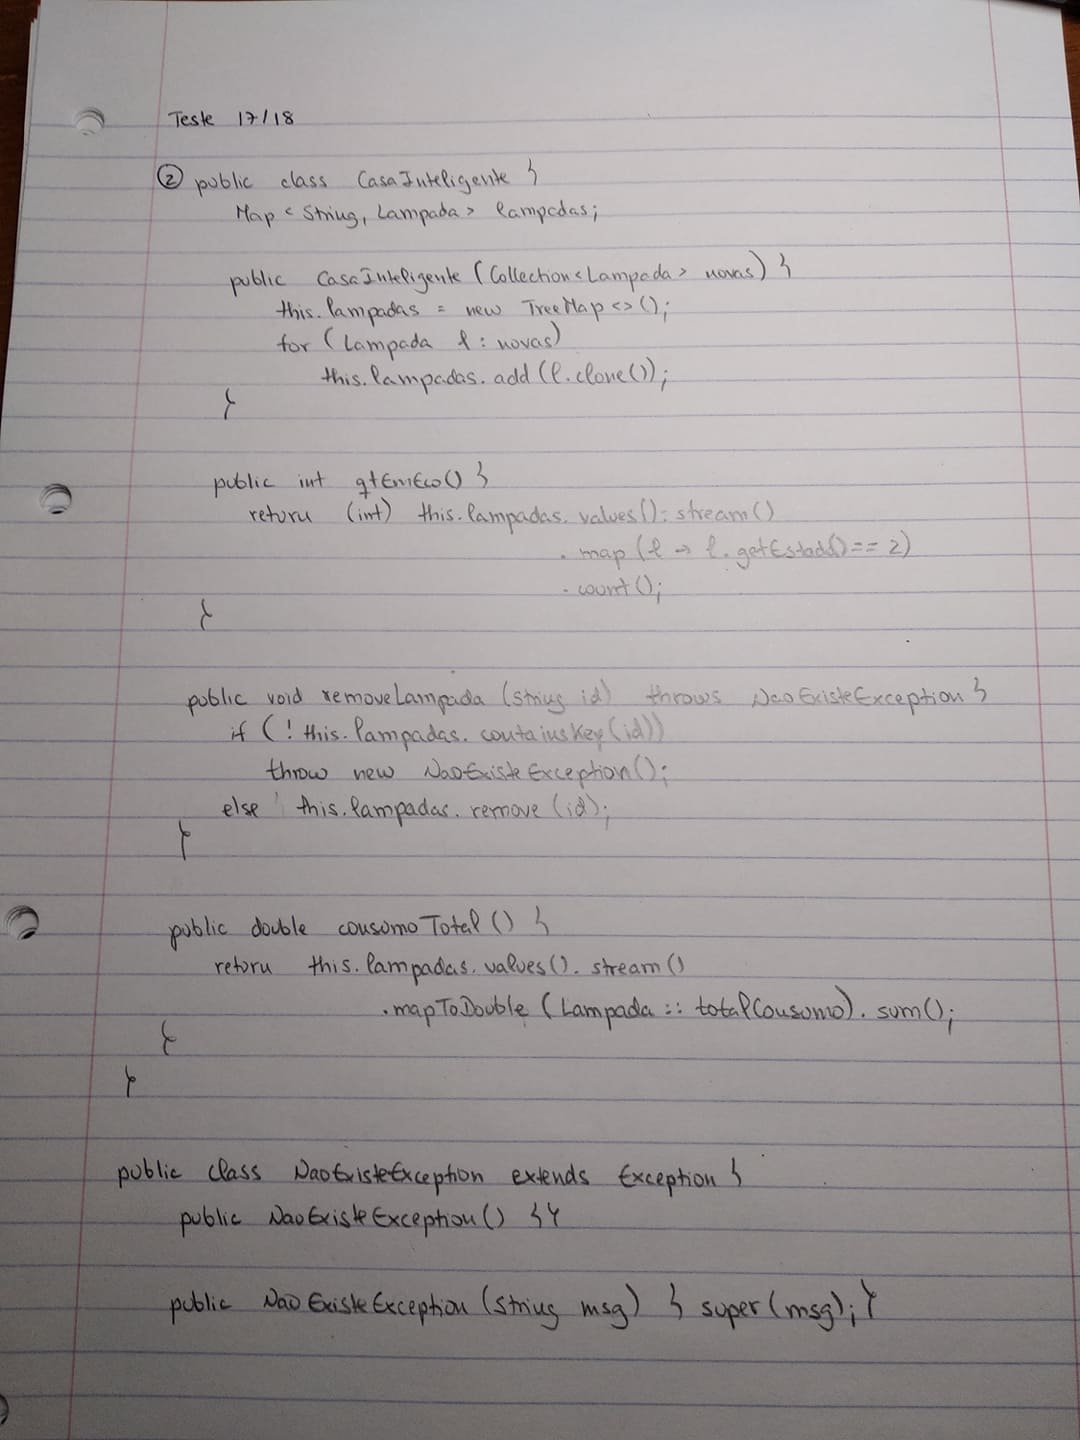 Teste 17/18
② public class CasaInteligente {
Map <String, Lampada> lampadas;
public CasaInteligente (Collection<Lampada> novas) {
this.lampadas = new TreeMap<>();
for (Lampada l : novas)
this.lampadas.add(l.clone());
}
public int qtEmEco() {
return (int) this.lampadas.values().stream()
.map(l -> l.getEstado() == 2)
.count();
}
public void removeLampada (String id) throws NaoExisteException {
if (! this.lampadas.containsKey(id))
throw new NaoExisteException();
else this.lampadas.remove(id);
}
public double consumoTotal () {
return this.lampadas.values().stream()
.mapToDouble (Lampada :: totalConsumo).sum();
}
}
public class NaoExisteException extends Exception {
public NaoExisteException() {}
public NaoExisteException (String msg) { super(msg); }